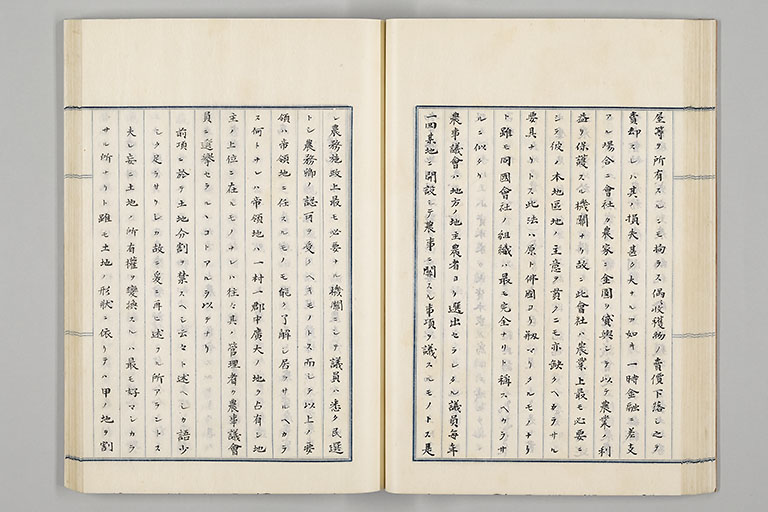 屋等ヲ所有スルニモ拘ラス偶收穫物ノ賣價下落シ之ヲ
賣却スレハ其ノ損失甚タ大ナルカ如キ一時金融ニ差支
アル場合ニ會社ヨリ農家ニ金圓ヲ貸與シ以テ農業ノ利
益ヲ保護スル機關ナリ故ニ此會社ハ農業上最モ必要ニ
シテ彼ノ本地區地ノ主意ヲ貫クニモ亦缺クヘカラサル
要具ナリトス此法ハ原ト佛國ヨリ剏マリタルモノナリ
ト雖モ同國會社ノ組織ハ最モ完全ナリト稱スヘカラサ
ルニ似タリ
農事議會ハ地方ノ地主農者ヨリ選出セラレタル議員毎年
一回某地ニ開設シテ農事ニ關スル事項ヲ議スルモノトス是
レ農務施政上最モ必要ナル機關ニシテ議員ハ悉ク民選
トシ農務卿ノ認可ヲ受クヘキモノトス而シテ以上ノ要
領ハ帝領地ニ任スルモノモ能ク了解シ居ラサルヘカラ
ス何トナレハ帝領地ハ一村一郡中廣大ノ地ヲ占有シ地
主ノ上位ニ在ルモノナレハ往々其ノ管理者ヲ農事議會
員ニ選擧セラルヽコトアルヲ以テナリ
前項ニ於テ土地分割ヲ禁スヘシ云々ト述ヘシカ語少
シク足ラサリシカ故ニ爰ニ再ヒ述フル所アラントス
夫レ妄ニ土地ノ所有權ヲ變換スルハ最モ好マシカラ
サル所ナリト雖モ土地ノ形狀ニ依リテハ甲ノ地ヲ割